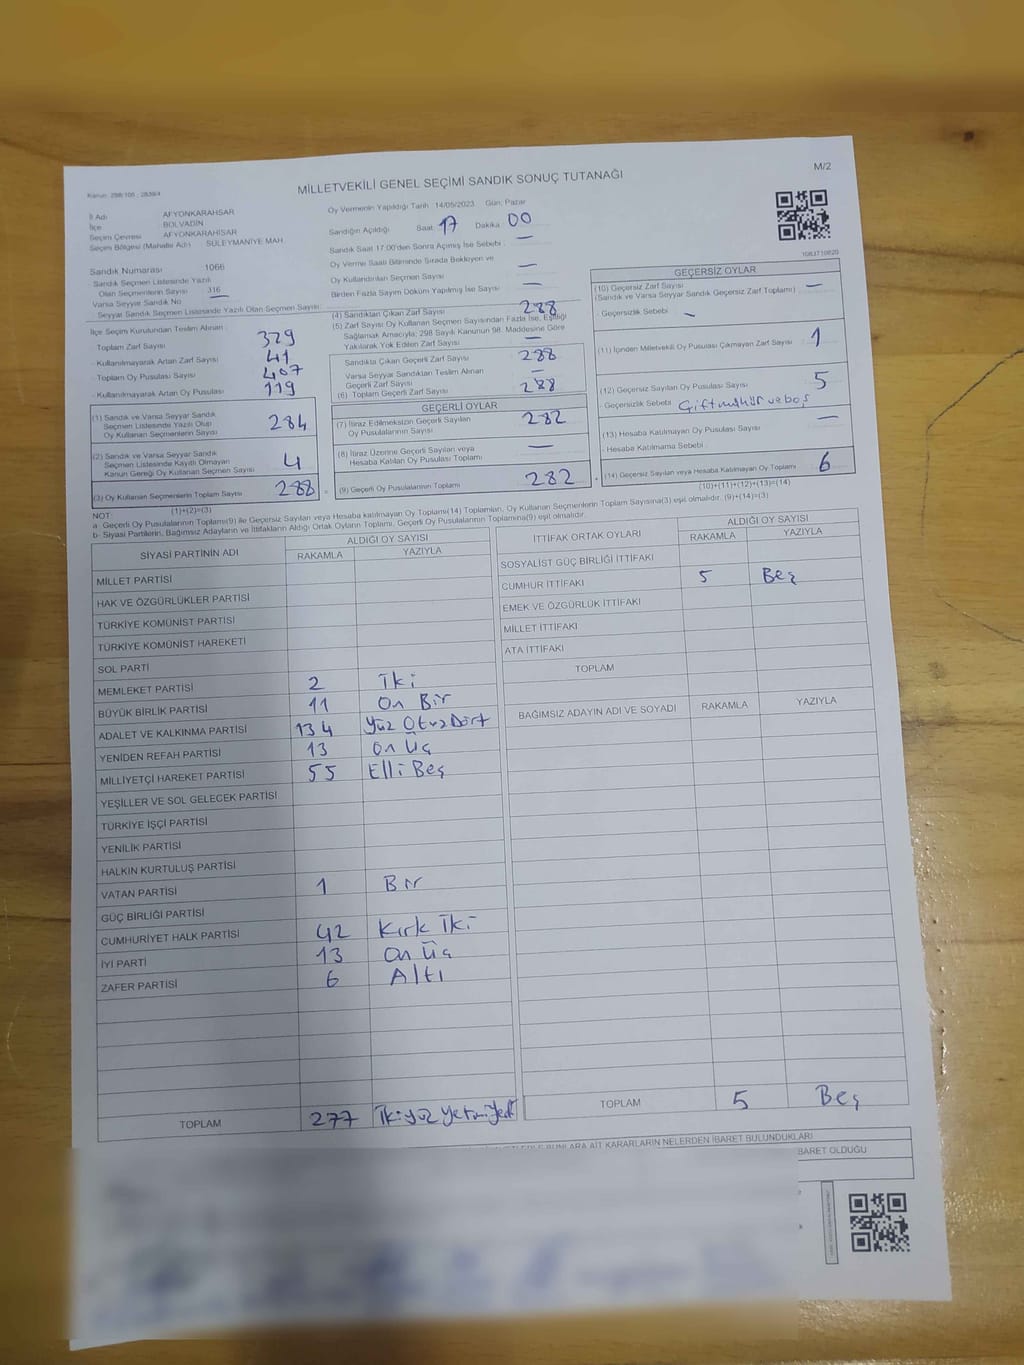 Kanun: 298/105 - 2839/4
M/2
MİLLETVEKİLİ GENEL SEÇİMİ SANDIK SONUÇ TUTANAĞI
İl Adı AFYONKARAHİSAR
İlçe BOLVADİN
Seçim Çevresi AFYONKARAHİSAR
Seçim Bölgesi (Mahalle Adı) SÜLEYMANİYE MAH
Sandık Numarası 1066
Sandık Seçmen Listesinde Yazılı
Olan Seçmenlerin Sayısı 316
Varsa Seyyar Sandık No
Seyyar Sandık Seçmen Listesinde Yazılı Olan Seçmen Sayısı: —
Oy Vermenin Yapıldığı Tarih 14/05/2023 Gün: Pazar
Sandığın Açıldığı Saat 17 Dakika 00
Sandık Saat 17.00'den Sonra Açılmış İse Sebebi: —
Oy Verme Saati Bitiminde Sırada Bekleyen ve
Oy Kullandırılan Seçmen Sayısı —
Birden Fazla Sayım Döküm Yapılmış İse Sayısı —
İlçe Seçim Kurulundan Teslim Alınan
- Toplam Zarf Sayısı 329
- Kullanılmayarak Artan Zarf Sayısı 41
- Toplam Oy Pusulası Sayısı 407
- Kullanılmayarak Artan Oy Pusulası 119
(1) Sandık ve Varsa Seyyar Sandık
Seçmen Listesinde Yazılı Olup
Oy Kullanan Seçmenlerin Sayısı 284
(2) Sandık ve Varsa Seyyar Sandık
Seçmen Listesinde Kayıtlı Olmayan
Kanun Gereği Oy Kullanan Seçmen Sayısı 4
(3) Oy Kullanan Seçmenlerin Toplam Sayısı 288
(1)+(2)=(3)
(4) Sandıktan Çıkan Zarf Sayısı 288
(5) Zarf Sayısı Oy Kullanan Seçmen Sayısından Fazla İse, Eşitliği
Sağlamak Amacıyla; 298 Sayılı Kanunun 98. Maddesine Göre
Yakılarak Yok Edilen Zarf Sayısı —
Sandıkta Çıkan Geçerli Zarf Sayısı 288
Varsa Seyyar Sandıktan Teslim Alınan
Geçerli Zarf Sayısı —
(6) Toplam Geçerli Zarf Sayısı 288
GEÇERLİ OYLAR
(7) İtiraz Edilmeksizin Geçerli Sayılan
Oy Pusulalarının Sayısı 282
(8) İtiraz Üzerine Geçerli Sayılan veya
Hesaba Katılan Oy Pusulası Toplamı —
(9) Geçerli Oy Pusulalarının Toplamı 282
1083710620
GEÇERSİZ OYLAR
(10) Geçersiz Zarf Sayısı
(Sandık ve Varsa Seyyar Sandık Geçersiz Zarf Toplamı) —
Geçersizlik Sebebi —
(11) İçinden Milletvekili Oy Pusulası Çıkmayan Zarf Sayısı 1
(12) Geçersiz Sayılan Oy Pusulası Sayısı 5
Geçersizlik Sebebi Çift mühür ve boş
(13) Hesaba Katılmayan Oy Pusulası Sayısı —
Hesaba Katılmama Sebebi
(14) Geçersiz Sayılan veya Hesaba Katılmayan Oy Toplamı 6
(10)+(11)+(12)+(13)=(14)
NOT:
a- Geçerli Oy Pusulalarının Toplamı(9) ile Geçersiz Sayılan veya Hesaba katılmayan Oy Toplamı(14) Toplamları, Oy Kullanan Seçmenlerin Toplam Sayısına(3) eşit olmalıdır. (9)+(14)=(3)
b- Siyasi Partilerin, Bağımsız Adayların ve İttifakların Aldığı Ortak Oyların Toplamı, Geçerli Oy Pusulalarının Toplamına(9) eşit olmalıdır.
SİYASİ PARTİNİN ADI ALDIĞI OY SAYISI
RAKAMLA YAZIYLA
MİLLET PARTİSİ
HAK VE ÖZGÜRLÜKLER PARTİSİ
TÜRKİYE KOMÜNİST PARTİSİ
TÜRKİYE KOMÜNİST HAREKETİ
SOL PARTİ
MEMLEKET PARTİSİ 2 İki
BÜYÜK BİRLİK PARTİSİ 11 On Bir
ADALET VE KALKINMA PARTİSİ 134 Yüz Otuz Dört
YENİDEN REFAH PARTİSİ 13 On Üç
MİLLİYETÇİ HAREKET PARTİSİ 55 Elli Beş
YEŞİLLER VE SOL GELECEK PARTİSİ
TÜRKİYE İŞÇİ PARTİSİ
YENİLİK PARTİSİ
HALKIN KURTULUŞ PARTİSİ
VATAN PARTİSİ 1 Bir
GÜÇ BİRLİĞİ PARTİSİ
CUMHURİYET HALK PARTİSİ 42 Kırk İki
İYİ PARTİ 13 On Üç
ZAFER PARTİSİ 6 Altı
TOPLAM 277 İkiyüz Yetmiş Yedi
İTTİFAK ORTAK OYLARI ALDIĞI OY SAYISI
RAKAMLA YAZIYLA
SOSYALİST GÜÇ BİRLİĞİ İTTİFAKI
CUMHUR İTTİFAKI 5 Beş
EMEK VE ÖZGÜRLÜK İTTİFAKI
MİLLET İTTİFAKI
ATA İTTİFAKI
TOPLAM
BAĞIMSIZ ADAYIN ADI VE SOYADI RAKAMLA YAZIYLA
TOPLAM 5 Beş
BUNLARA AİT KARARLARIN NELERDEN İBARET BULUNDUKLARI
İBARET OLDUĞU